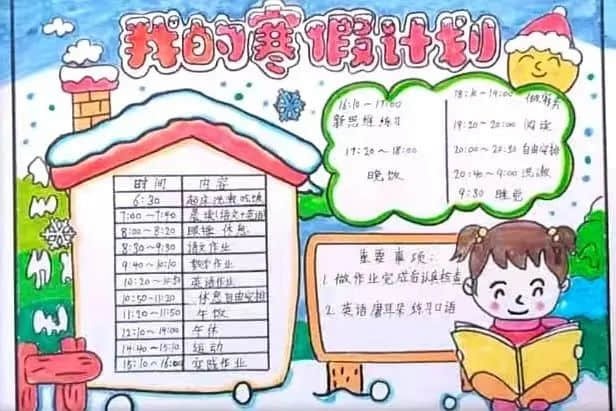 我的寒假计划
时间 内容
6:30 起床 洗漱 吃饭
7:00~7:40 晨读(语文+英语)
8:00~8:20 眼睡 休息
8:30~9:30 语文作业
9:40~10:10 数学作业
10:20~10:50 英语作业
10:50~11:20 休息自由安排
11:20~11:50 午饭
12:10~14:00 午休
14:40~15:10 运动
15:10~16:00 实践作业
16:10~17:00
新思维练习
17:20~18:00
晚饭
18:10~19:00 做家务
19:20~20:00 阅读
20:00~20:30 自由安排
20:40~9:00 洗漱
9:30 睡觉
重要事项:
1. 做作业完成后认真检查
2. 英语磨耳朵 练习口语